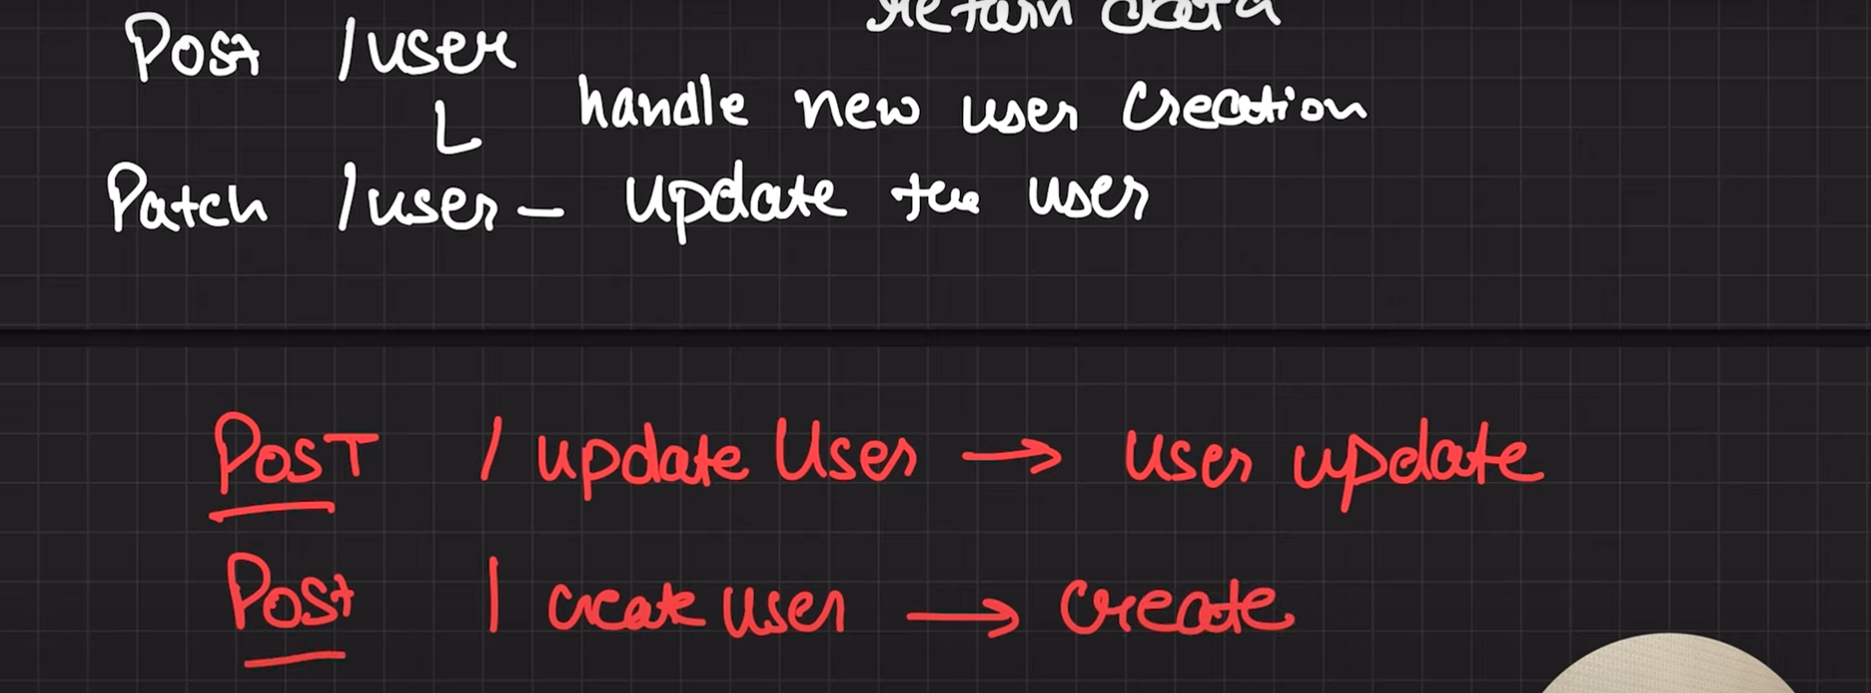 Return data
Post /user
handle new user creation
Patch /user - update the user
POST /updateUser → user update
Post /create user → create